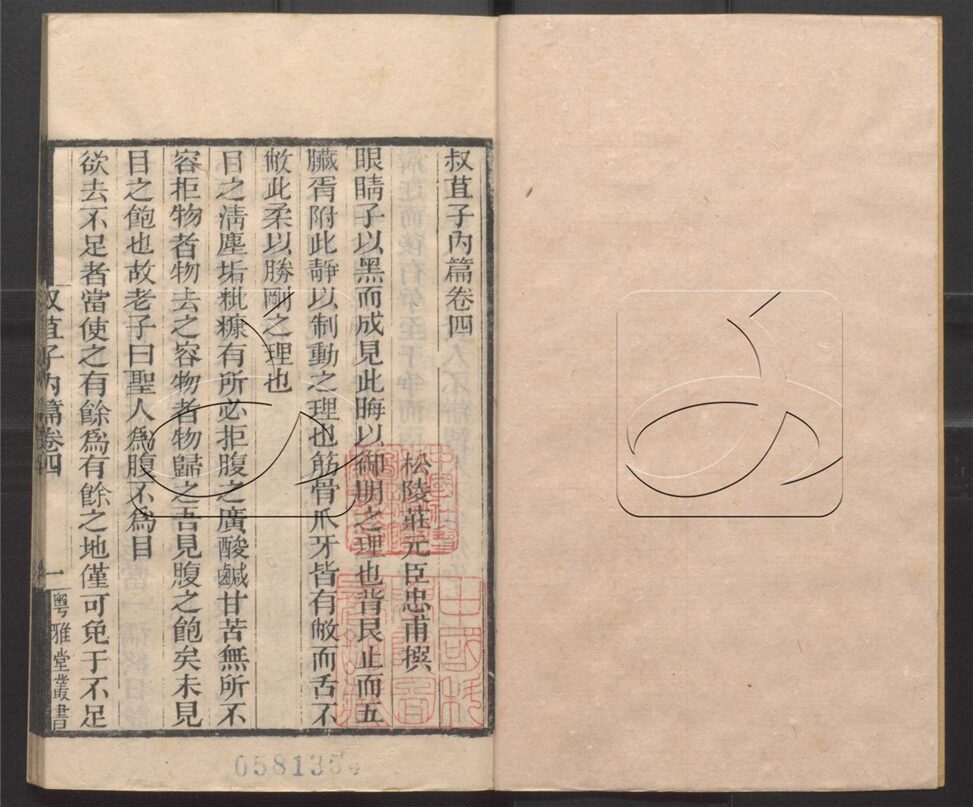 叔苴子內篇卷四
松陵莊元臣忠甫撰
眼睛子以黑而成見此晦以御明之理也背艮止而五
臟胥附此靜以制動之理也筋骨爪牙皆有敝而舌不
敝此柔以勝剛之理也
目之淸塵垢粃糠有所必拒腹之廣酸鹹甘苦無所不
容拒物者物去之容物者物歸之吾見腹之飽矣未見
目之飽也故老子曰聖人爲腹不爲目
欲去不足者當使之有餘爲有餘之地僅可免于不足
叔苴子內篇卷四
一
粤雅堂叢書
0581354